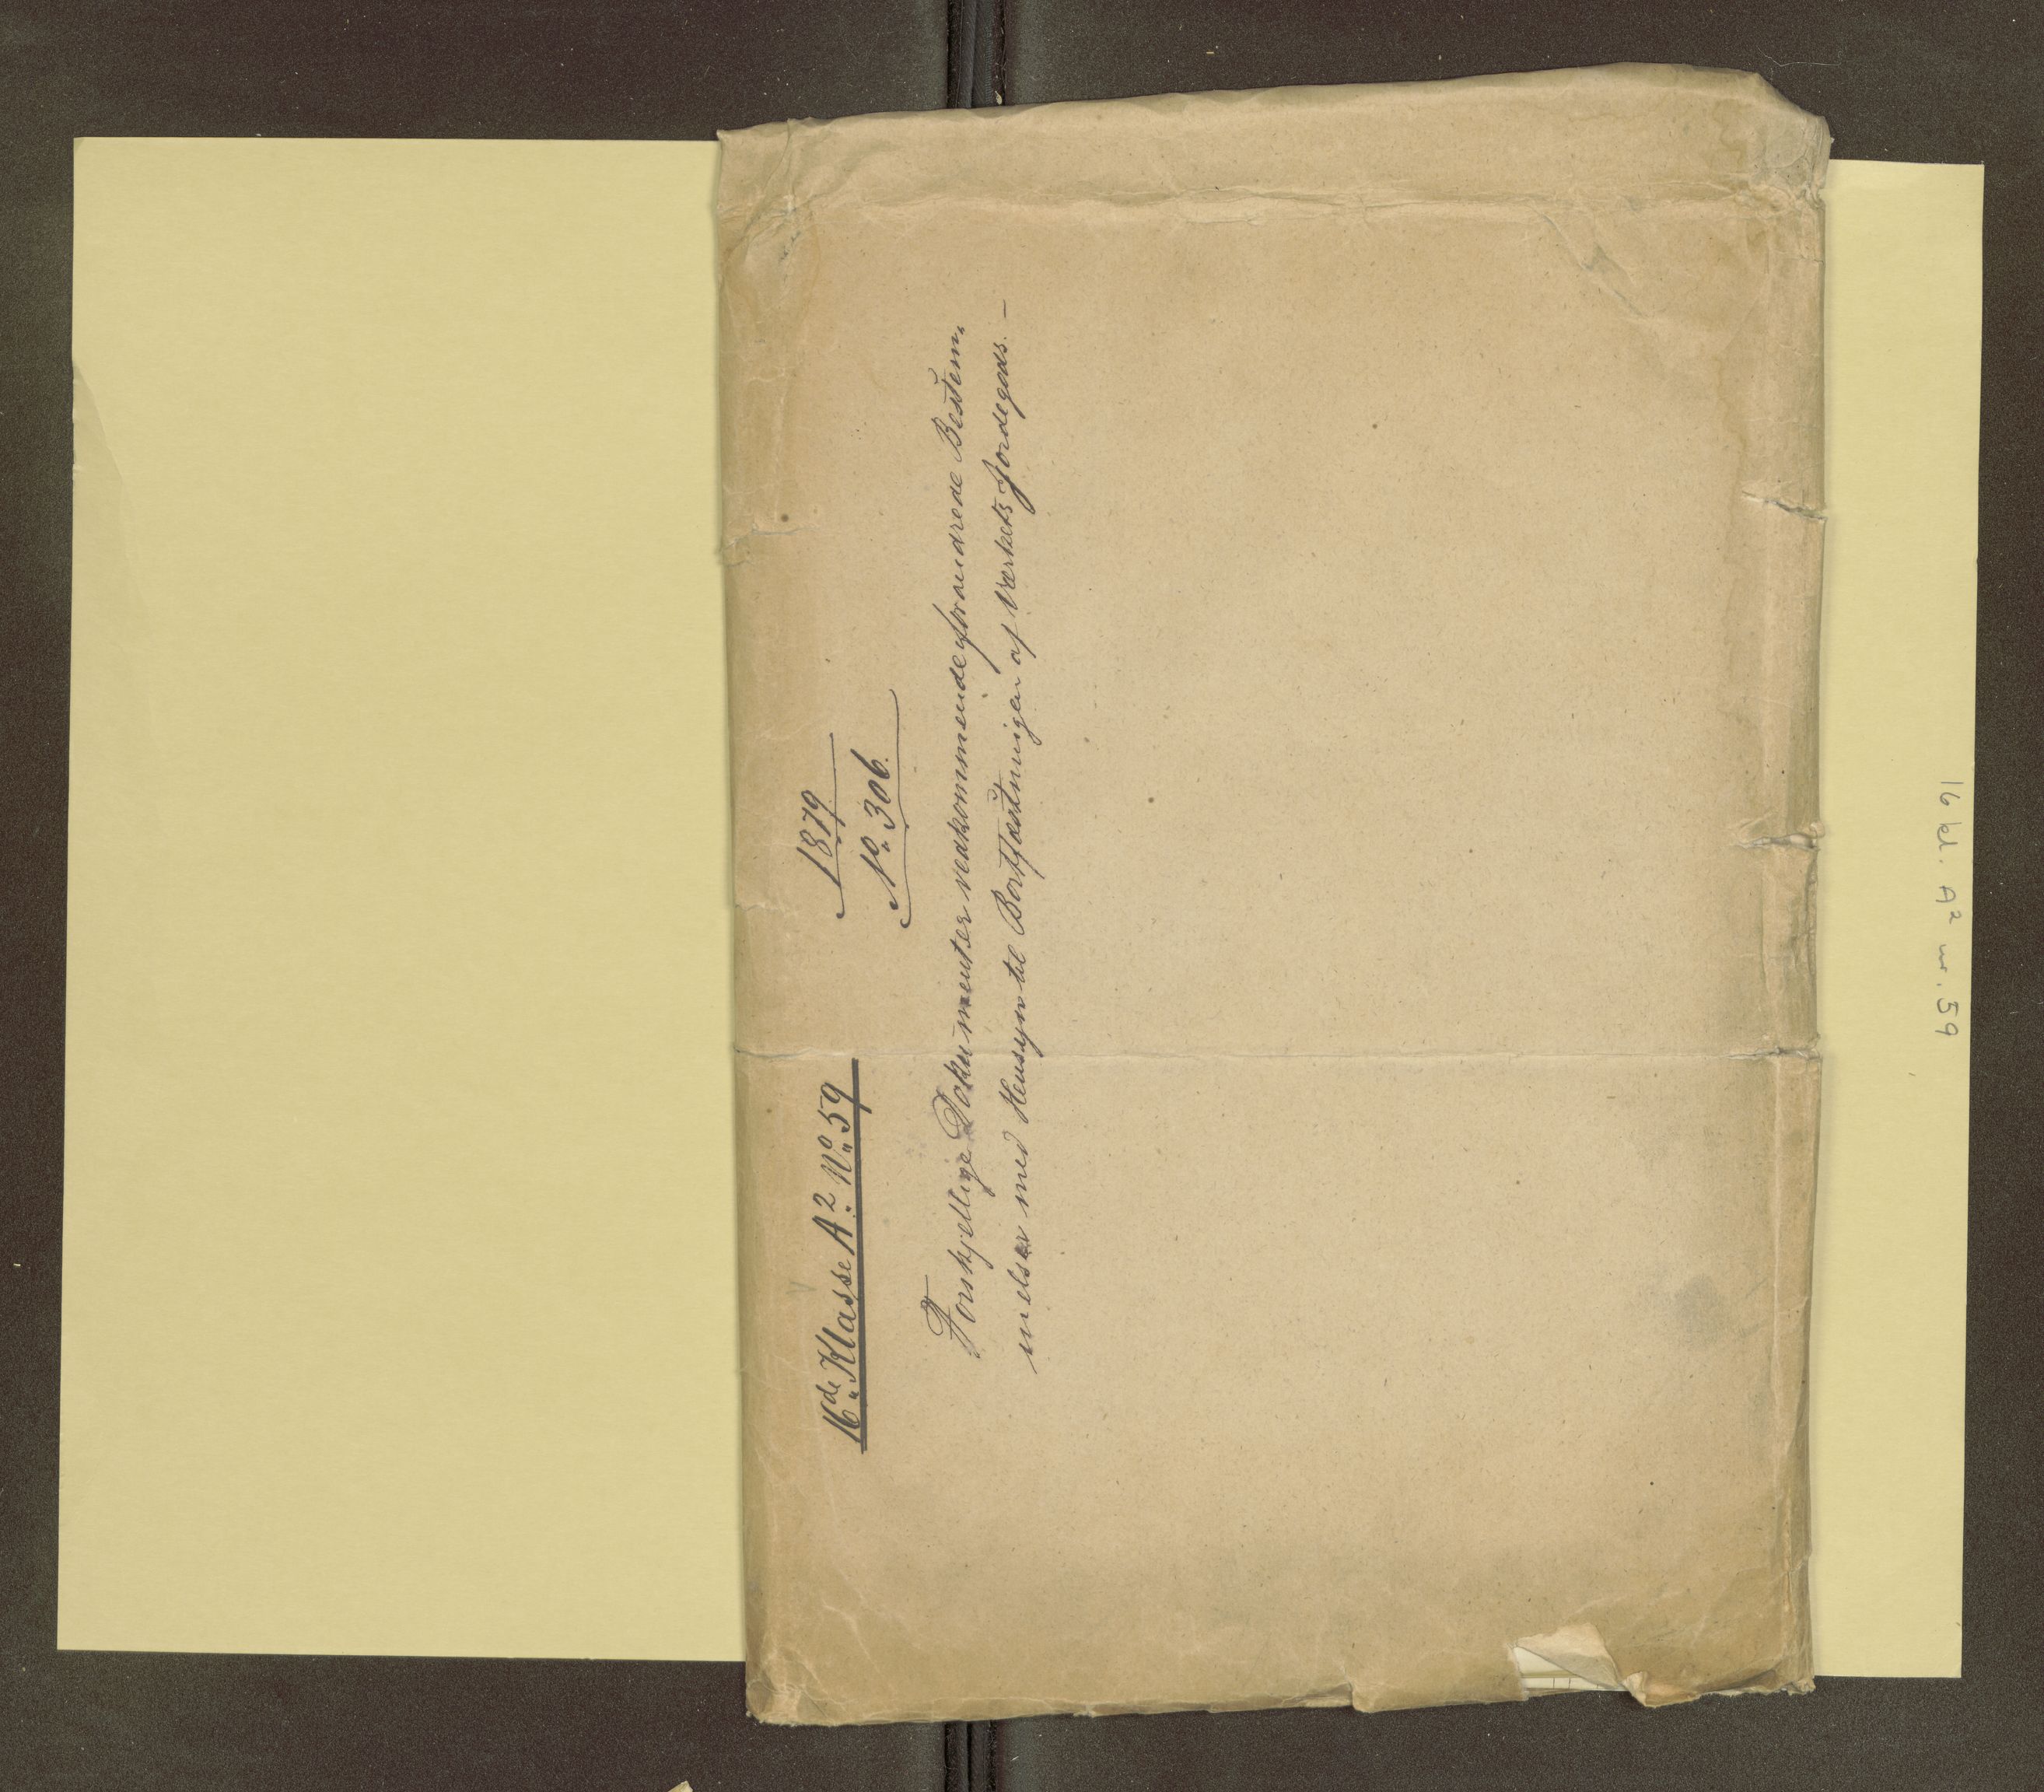 16de Klasse A2. No. 59
1879
No. 306.
Forskjellige Dokumenter vedkommende forandrede Bestem„
melser med Hensyn til Bortfæstningen af Værkets Jordegods. –
16 kl. A2 nr. 59